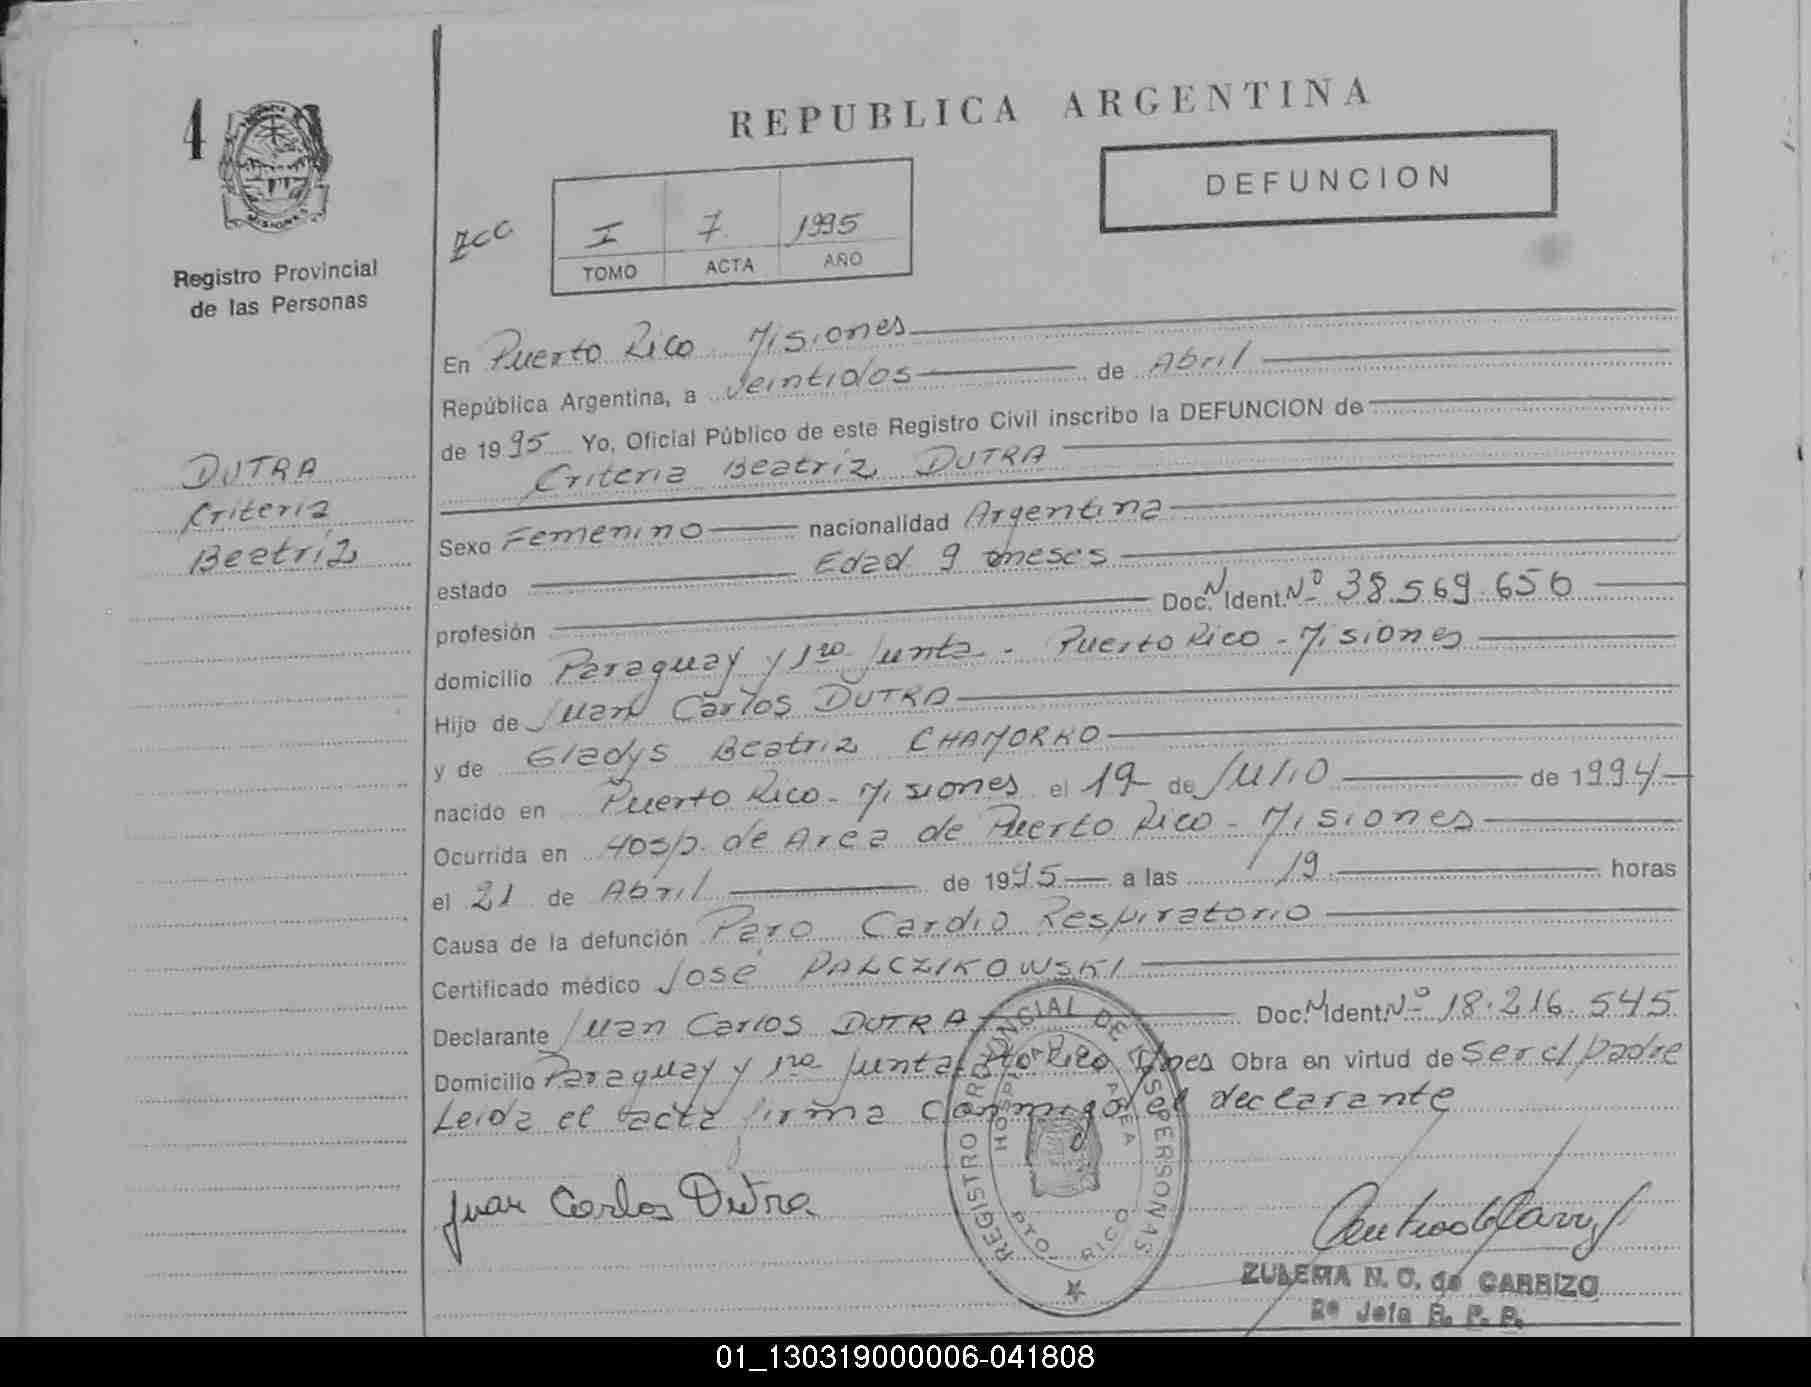 4
REPUBLICA ARGENTINA
DEFUNCION
I 7 1995
TOMO ACTA AÑO
MISIONES
Registro Provincial
de las Personas
DUTRA
Criteria
Beatriz
En Puerto Rico Misiones
República Argentina, a Veintidos de Abril
de 1995 Yo, Oficial Público de este Registro Civil inscribo la DEFUNCION de
Criteria Beatriz DUTRA
Sexo Femenino nacionalidad Argentina
estado Edad 9 meses
profesión Doc. N Ident. Nº 38.569.656
domicilio Paraguay y 1ra Junta - Puerto Rico - Misiones
Hijo de Juan Carlos DUTRA
y de Gladys Beatriz CHAMORRO
nacido en Puerto Rico - Misiones el 19 de Julio de 1994
Ocurrida en Hosp. de Area de Puerto Rico - Misiones
el 21 de Abril de 1995 a las 19 horas
Causa de la defunción Paro Cardio Respiratorio
Certificado médico José PALCZIKOWSKI
Declarante Juan Carlos DUTRA Doc. N Ident. Nº 18.216.545
Domicilio Paraguay y 1ra Junta Pto Rico Mnes Obra en virtud de ser el padre
Leida el acta firma conmigo el declarante
Juan Carlos Dutra
REGISTRO PROVINCIAL DE LAS PERSONAS
HOSP. AREA
PTO. RICO
ZULEMA N. C. de CARRIZO
2º Jefa R. P. P.
01_130319000006-041808